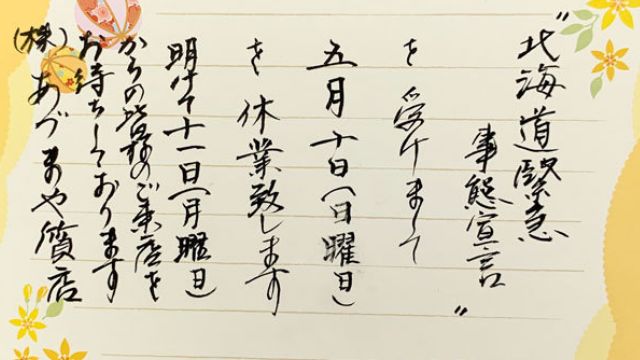 "北海道緊急
事態宣言"
を受けまして
五月十日(日曜日)
を休業致します
明けて十一日(月曜日)
からの皆様のご来店を
お待ちしております
(株)あづまや質店